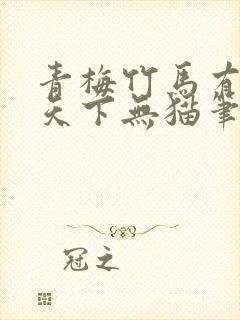 青梅竹馬有
天下無猫筆
冠之